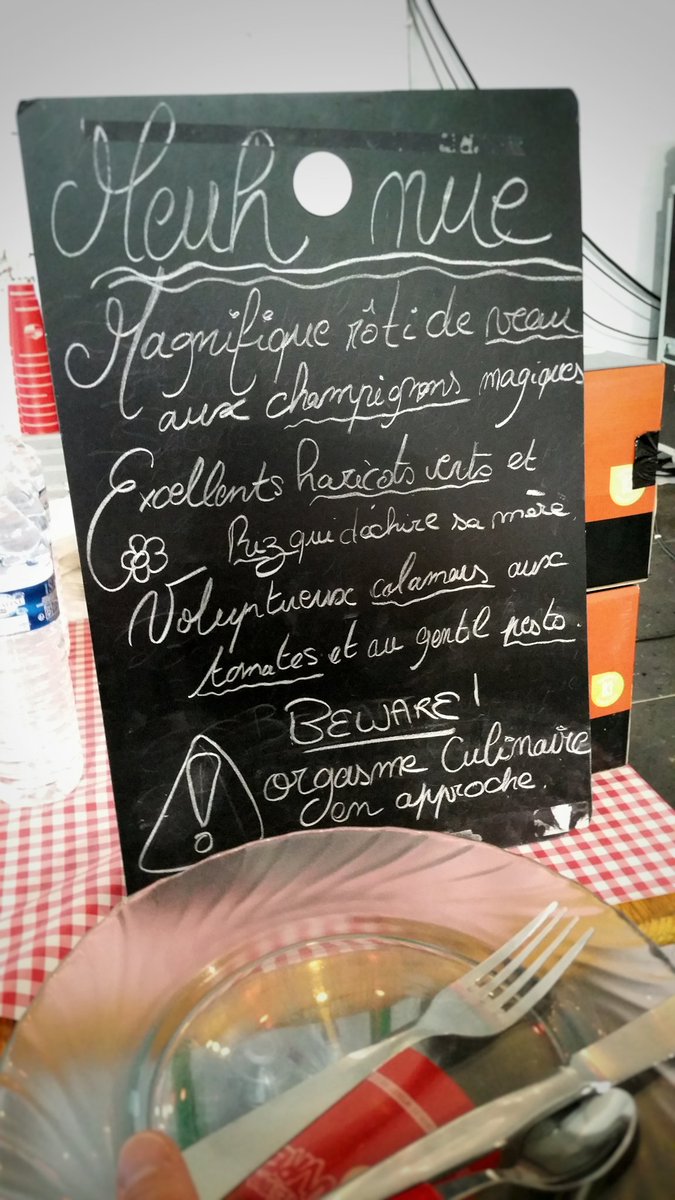 Meuh nue
Magnifique rôti de veau
aux champignons magiques
Excellents haricots verts et
Riz qui déchire sa mère.
Voluptueux calamars aux
tomates et au gentil pesto.
BEWARE!
orgasme culinaire
en approche.